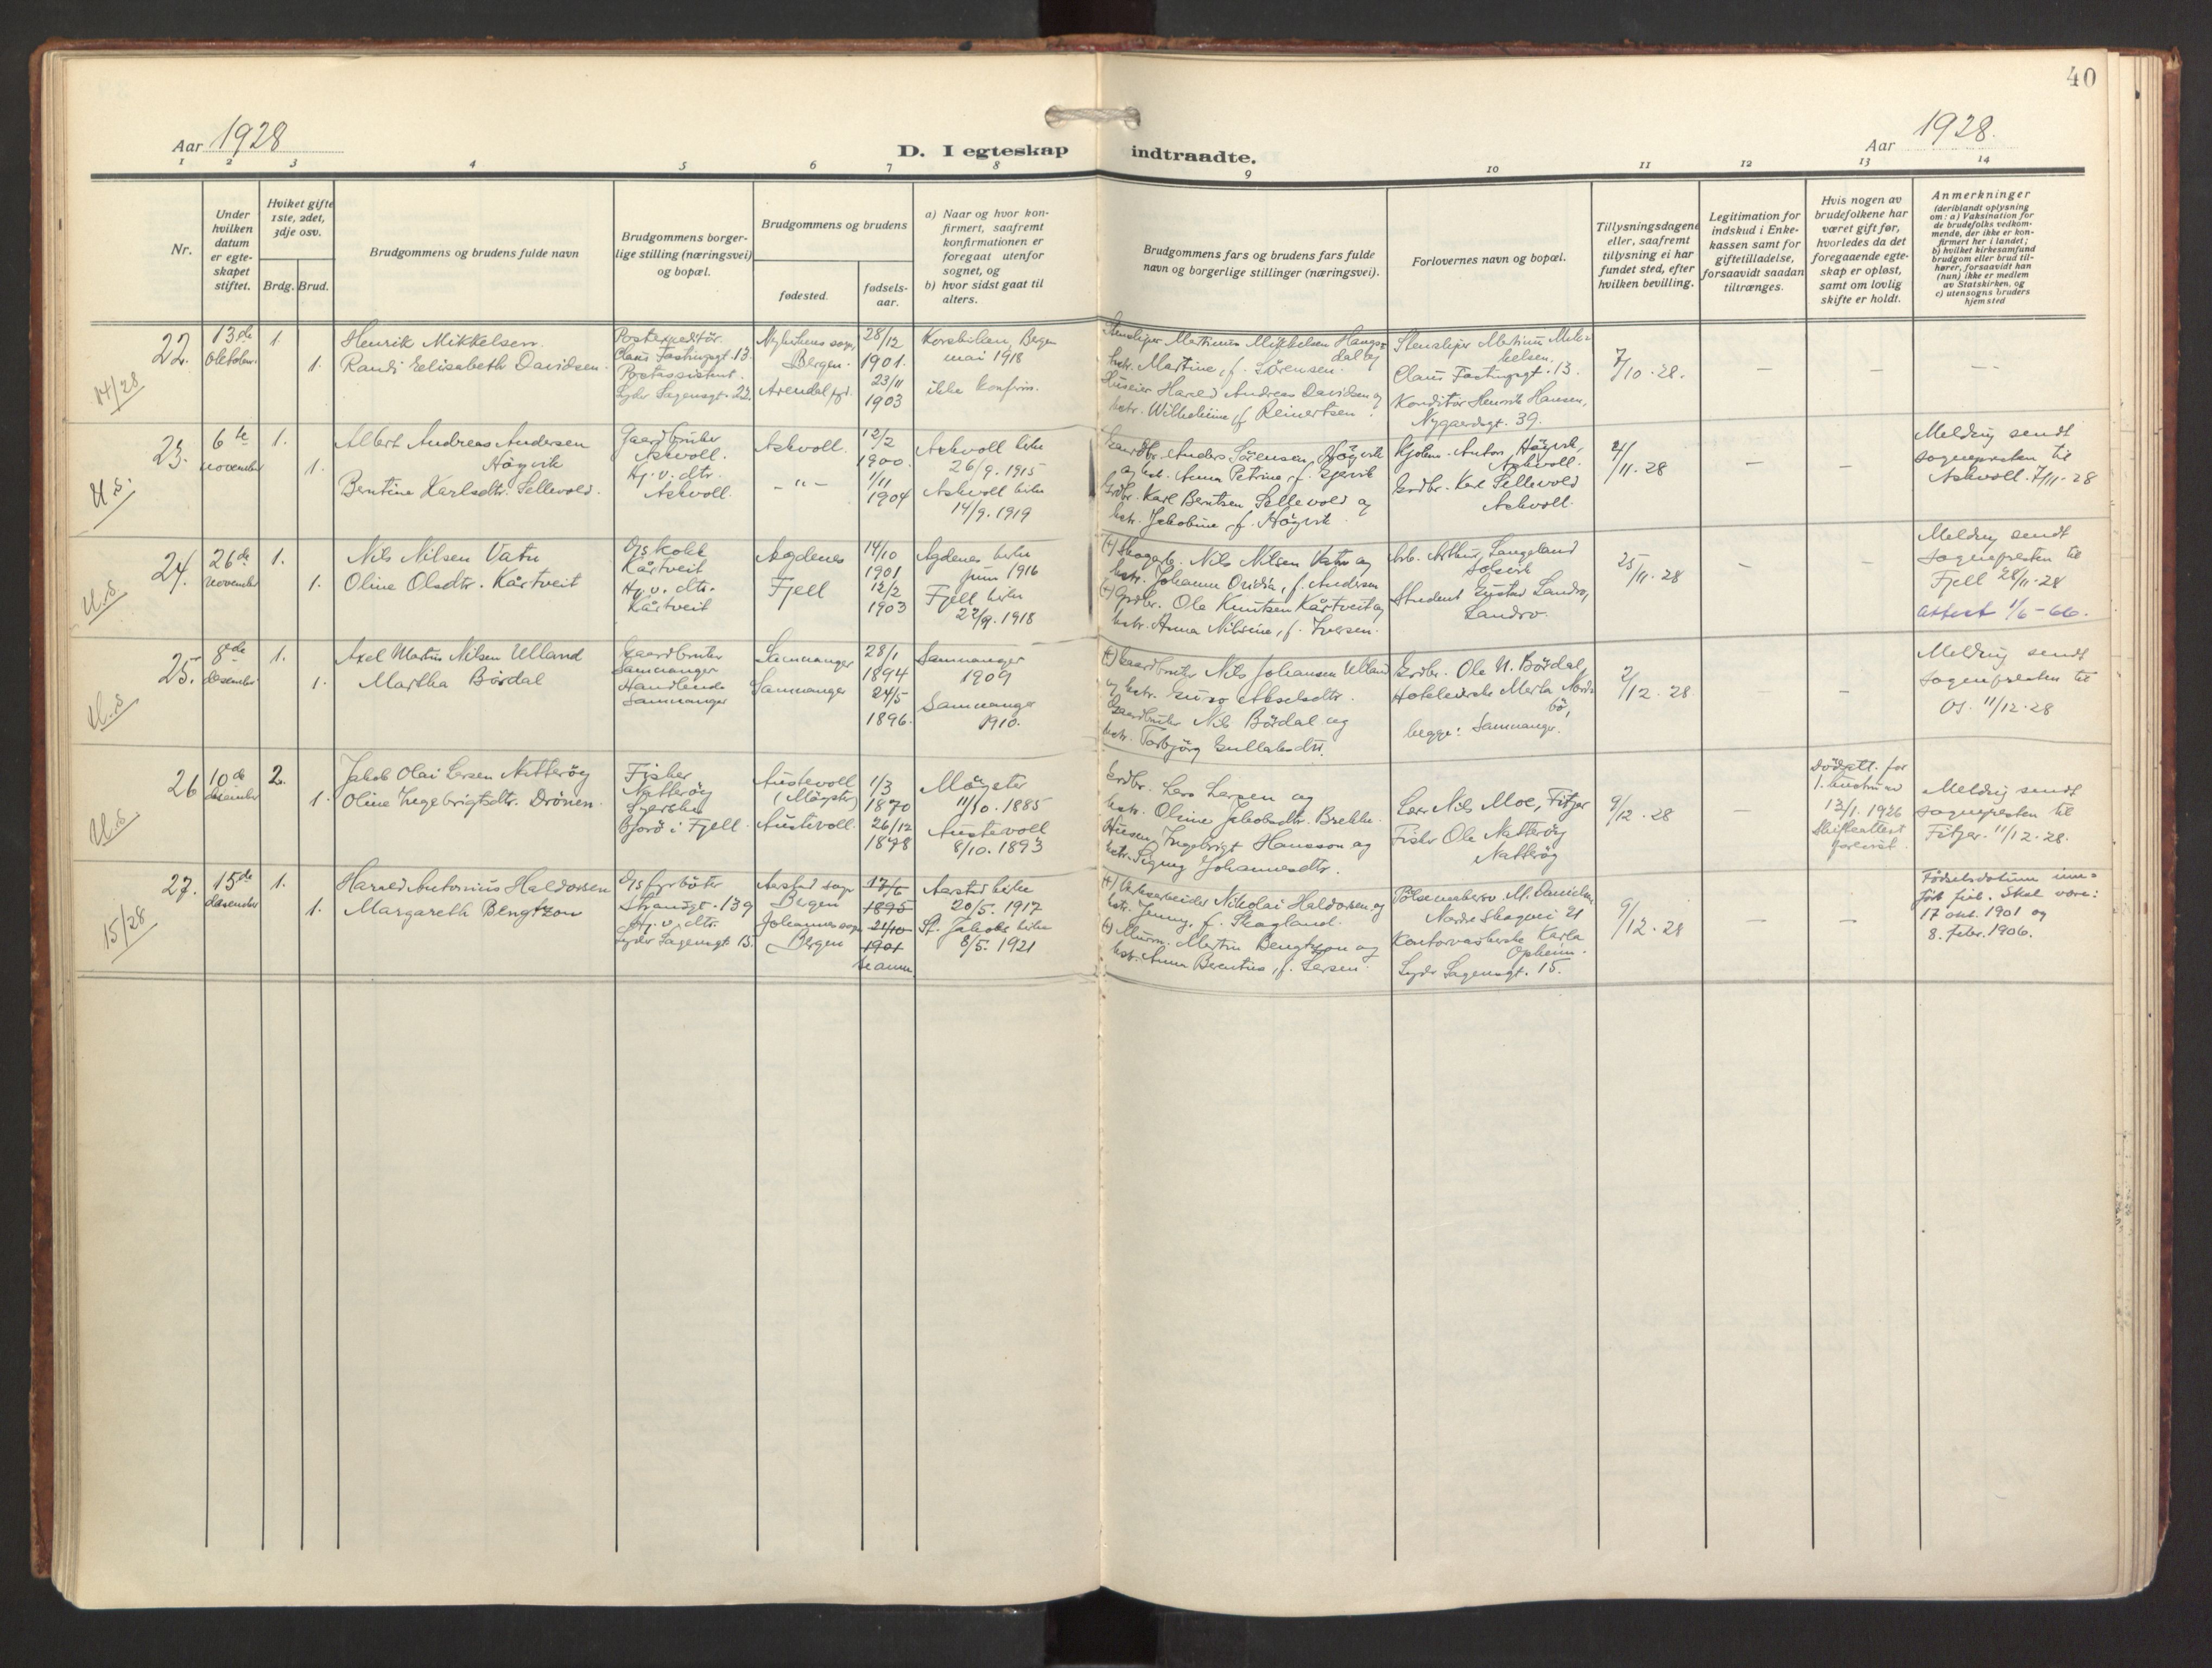 40
Aar 1928
D. I egteskap indtraadte.
Aar 1928.
1 2 3 4 5 6 7 8 9 10 11 12 13 14
Nr.
Under hvilken datum er egteskapet stiftet.
Hviket gifte 1ste, 2det, 3dje osv.
Brdg. Brud.
Brudgommens og brudens fulde navn
Brudgommens borgerlige stilling (næringsvei) og bopæl.
Brudgommens og brudens
fødested.
fødselsaar.
a) Naar og hvor konfirmert, saafremt konfirmationen er foregaat utenfor sognet, og
b) hvor sidst gaat til alters.
Brudgommens fars og brudens fars fulde navn og borgerlige stillinger (næringsvei).
Forlovernes navn og bopæl.
Tillysningsdagene eller, saafremt tillysning ei har fundet sted, efter hvilken bevilling.
Legitimation for indskud i Enkekassen samt for giftetilladelse, forsaavidt saadan tiltrænges.
Hvis nogen av brudefolkene har været gift før, hvorledes da det foregaaende egteskap er opløst, samt om lovlig skifte er holdt.
Anmerkninger
(deriblandt oplysning om: a) Vaksination for de brudefolks vedkommende, der ikke er konfirmert her i landet; b) hvilket kirkesamfund brudgom eller brud tilhører, forsaavidt han (hun) ikke er medlem av Statskirken, og c) utensogns bruders hjemsted
22.
14/28
13de
oktober
1.
1.
Henrik Mikkelsen.
Randi Elisabeth Davidsen.
Postexpeditör.
Claus Fastingsgt. 13.
Postassistent.
Lyder Sagensgt. 22.
Nykirkens sogn,
Bergen.
Arendal
28/12
1901.
23/11
1903
Korskirken, Bergen
mai 1918
ikke konfirm.
Stensliper Martinus Mikkelsen Haugsdal og
hstr. Martine, f. Sörensen.
Huseier Harald Andreas Davidsen og
hstr. Wilhelmine, f. Reinertsen.
Stensliper Martinus Mikkelsen,
Claus Fastingsgt. 13.
Konditor Henrik Hansen,
Nygaardsgt. 39.
7/10 . 28.
–
–
–
23.
U.S.
6te
november
1.
1.
Albert Andreas Andersen
Högvik
Bentine Karlsdtr. Sellevold.
Gaardbruker
Askvoll.
Hj. v. dtr.
Askvoll.
Askvoll.
– " –
12/2
1900.
1/11
1904
Askvoll kirke
26/9. 1915
Askvoll kirke
14/9. 1919
Gaardbr. Anders Sörensen Högvik
og hst. Anna Petrine, f. Gjervik
Grdbr. Karl Berntsen Sellevold og
hstr. Jakobine, f. Högvik.
Anton Högvik,
Askvoll.
Grdbr. Karl Sellevold
Askvoll.
4/11 . 28
–
–
Melding sendt
sognepresten til
Askvoll. 7/11 - 28
24.
U.S
26de
november
1.
1.
Nils Nilsen Vatn
Oline Olsdtr. Kårtveit
Dskokk
Kårtveit
Hj. v. dtr.
Kårtveit
Agdenes
Fjell
14/10
1901
12/2
1903
Agdenes kirke
juni 1916
Fjell kirke
22/9. 1918
(+) Skogarb. Nils Nilsen Vatn og
hstr. Johanna f. Andersen
(+) Grdbr. Ole Knutsen Kårtveit og
hstr. Anna Nilsine, f. Iversen.
Arb. Arthur Langeland
Solsvik
Student Gustav Landro,
Landro.
25/11 . 28
–
–
Melding sendt
sognepresten til
Fjell 28/11 - 28
attest 1/6 - 66.
25.
U.S
8de
desember
1.
1.
Axel Martin Nilsen Ulland
Martha Bördal
Gaardbruker
Samnanger
Handlende
Samnanger
Samnanger
Samnanger
28/1
1894
24/5
1896.
Samnanger
1909
Samnanger
1910.
(+) Gaardbruker Nils Johansen Ulland
og hstr. Guro Akselsdtr.
Gaardbruker Nils Bördal og
hstr. Torbjörg Gullaksdtr.
Grdbr. Ole N. Bördal,
Marta Nordbö,
begge: Samnanger.
2/12 . 28
–
Melding sendt
sognepresten til
Os. 11/12 . 28
26
U.S
10de
desember
2.
1.
Jakob Olai Larsen Natteröy
Oline Ingebrigtsdtr. Drönen.
Fisker
Natteröy
Syerske
Bjorö i Fjell.
Austevoll
(Mögster)
Austevoll.
1/3
1870
26/12
1878
Mögster
11/10. 1885
Austevoll
8/10. 1893
Grdbr. Lars Larsen og
hstr. Oline Jakobsdtr. Brekke.
Husm. Ingebrigt Hansson og
hstr. Signy Johannesdtr.
Lærer Nils Moe, Fitjar
Fisker Ole Natteröy
Natteröy
9/12 . 28
–
Dödsatt. for
1. hustru av
13/1. 1926
Skifteattest
forevist.
Melding sendt
sognepresten til
Fitjar. 11/12 . 28.
27.
15/28
15de
desember
1.
1.
Harald Antonius Haldorsen
Margareth Bengtzon
Dsfyrböter
Strandgt. 139
Hj. v. dtr.
Lyder Sagensgt 15.
Aarstad sogn
Bergen
Johannes sogn
Bergen
17/6
1895
21/10
1901
se anm.
Aarstad kirke
20/5. 1917
St. Jakobs kirke
8/5. 1921
(+) Nikolai Haldorsen og
hstr. Jenny, f. Skagland.
(+) Murm. Martin Bengtzon og
hstr. Anna Berentine, f. Larsen.
Pölsemakersv. M. Danielsen
Nordre Skogvei 21
Karla
Opheim.
Lyder Sagensgt. 15.
9/12 . 28
–
–
Födselsdatum innfört feil. Skal være:
17 okt. 1901 og
8. febr. 1906.